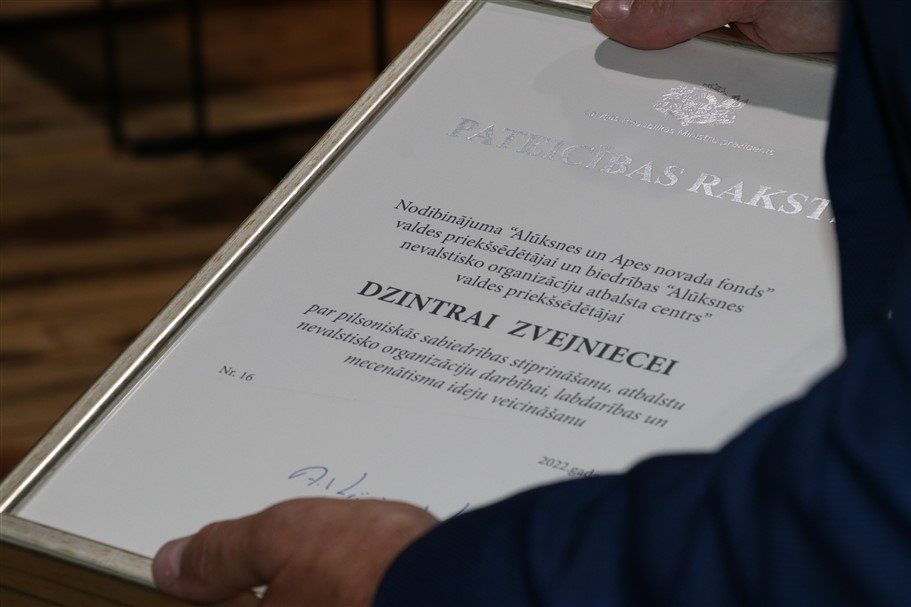 Latvijas Republikas Ministru prezidents
PATEICĪBAS RAKSTS
Nodibinājuma “Alūksnes un Apes novada fonds”
valdes priekšsēdētājai un biedrības “Alūksnes
nevalstisko organizāciju atbalsta centrs”
valdes priekšsēdētājai
DZINTRAI ZVEJNIECEI
par pilsoniskās sabiedrības stiprināšanu, atbalstu
nevalstisko organizāciju darbībai, labdarības un
mecenātisma ideju veicināšanu
Nr. 16
2022.gada